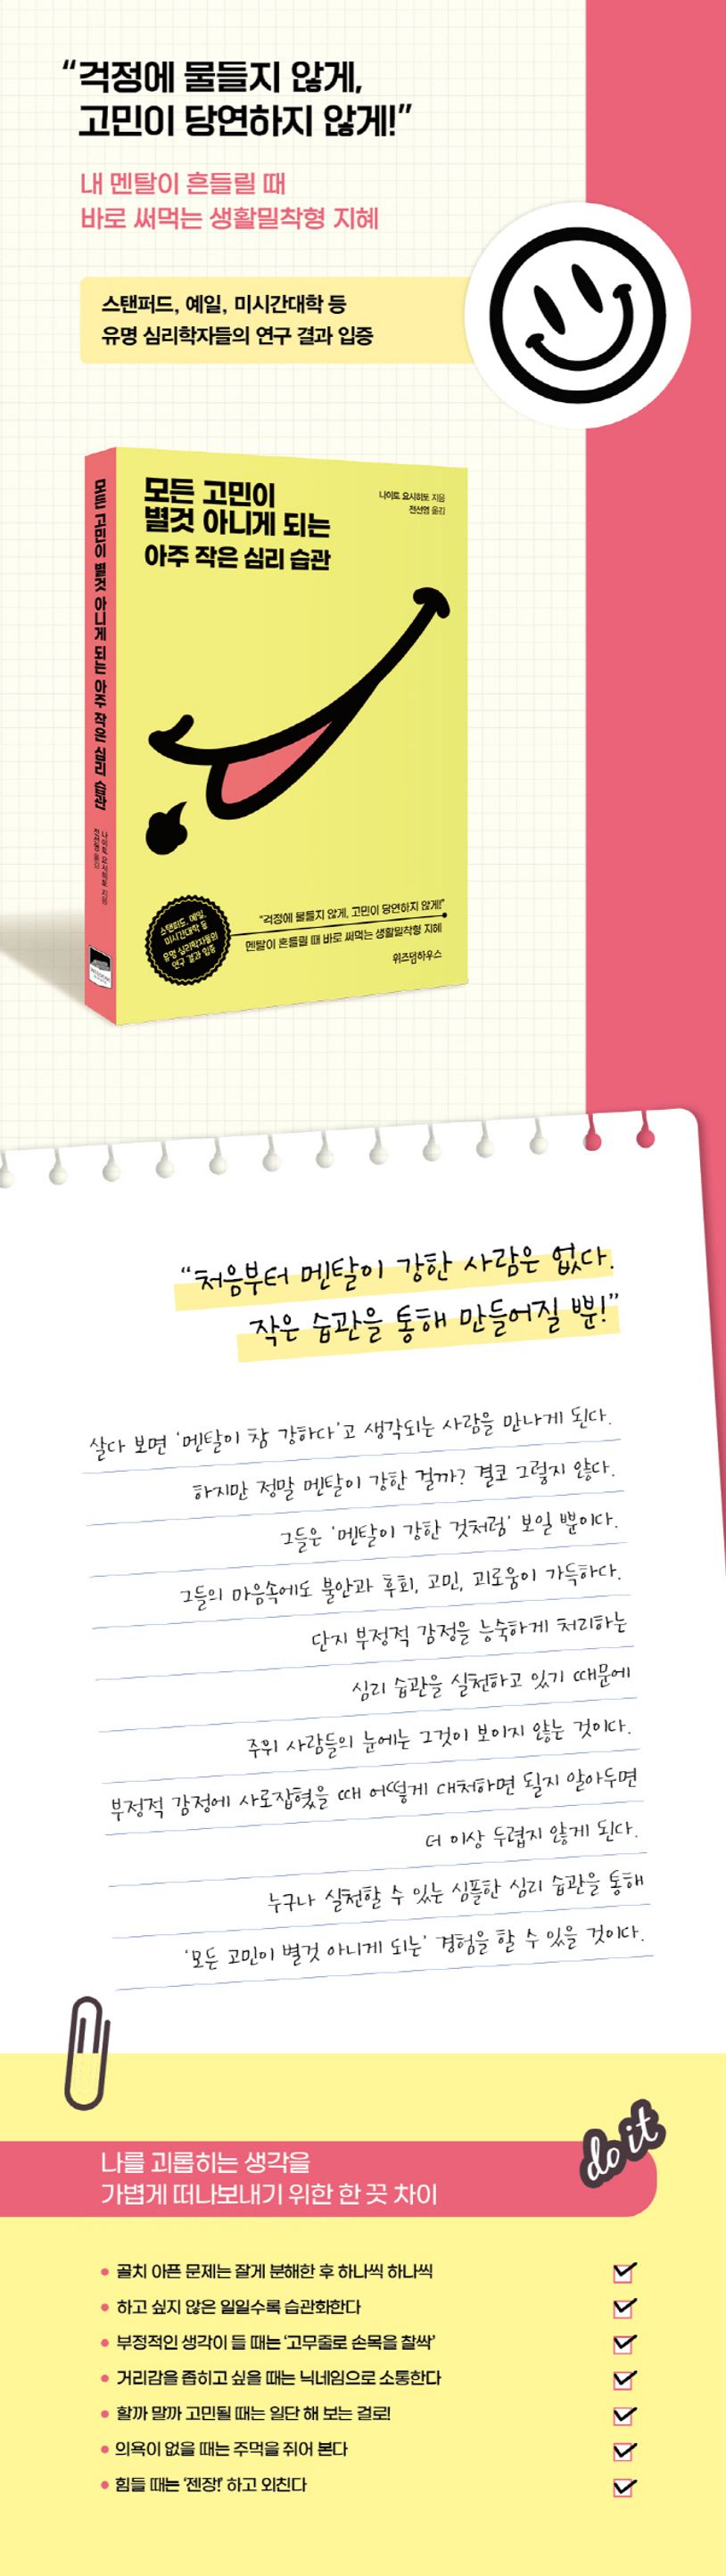 “걱정에 물들지 않게,
고민이 당연하지 않게!”
내 멘탈이 흔들릴 때
바로 써먹는 생활밀착형 지혜
스탠퍼드, 예일, 미시간대학 등
유명 심리학자들의 연구 결과 입증
모든 고민이 별것 아니게 되는 아주 작은 심리 습관
나이토 요시히토 지음
전선영 옮김
모든 고민이
별것 아니게 되는
아주 작은 심리 습관
나이토 요시히토 지음
전선영 옮김
스탠퍼드, 예일,
미시간대학 등
유명 심리학자들의
연구 결과 입증
“걱정에 물들지 않게, 고민이 당연하지 않게!”
멘탈이 흔들릴 때 바로 써먹는 생활밀착형 지혜
위즈덤하우스
“처음부터 멘탈이 강한 사람은 없다.
작은 습관을 통해 만들어질 뿐!”
살다 보면 ‘멘탈이 참 강하다’고 생각되는 사람을 만나게 된다.
하지만 정말 멘탈이 강한 걸까? 결코 그렇지 않다.
그들은 ‘멘탈이 강한 것처럼’ 보일 뿐이다.
그들의 마음속에도 불안과 후회, 고민, 괴로움이 가득하다.
단지 부정적 감정을 능숙하게 처리하는
심리 습관을 실천하고 있기 때문에
주위 사람들의 눈에는 그것이 보이지 않는 것이다.
부정적 감정에 사로잡혔을 때 어떻게 대처하면 될지 알아두면
더 이상 두렵지 않게 된다.
누구나 실천할 수 있는 심플한 심리 습관을 통해
‘모든 고민이 별것 아니게 되는’ 경험을 할 수 있을 것이다.
do it
나를 괴롭히는 생각을
가볍게 떠나보내기 위한 한 끗 차이
• 골치 아픈 문제는 잘게 분해한 후 하나씩 하나씩
• 하고 싶지 않은 일일수록 습관화한다
• 부정적인 생각이 들 때는 ‘고무줄로 손목을 찰싹’
• 거리감을 좁히고 싶을 때는 닉네임으로 소통한다
• 할까 말까 고민될 때는 일단 해 보는 걸로!
• 의욕이 없을 때는 주먹을 쥐어 본다
• 힘들 때는 ‘젠장!’ 하고 외친다